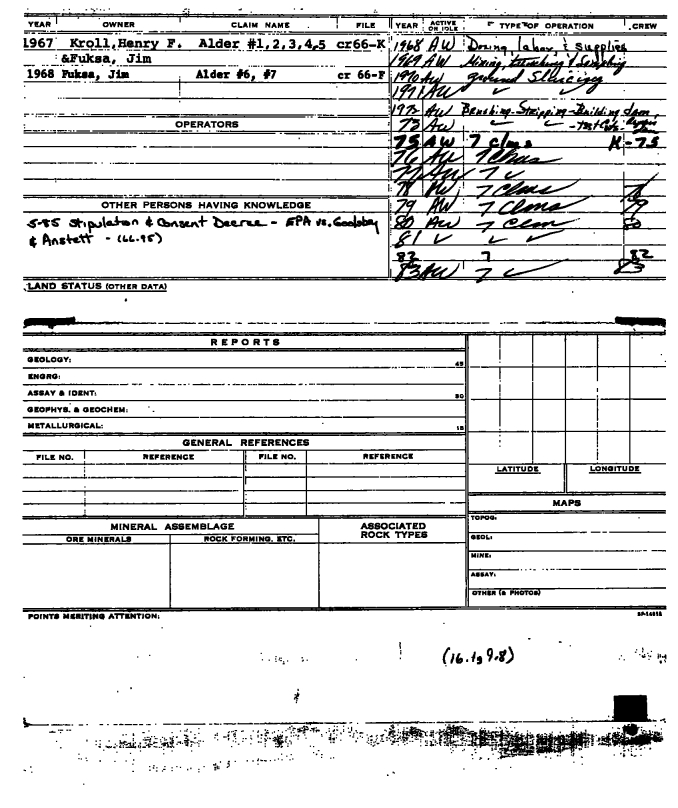 YEAR OWNER CLAIM NAME FILE YEAR ACTIVE OR IDLE TYPE OF OPERATION CREW
1967 Kroll,Henry F. Alder #1,2,3,4,5 cr66-K
&Fuksa, Jim
1968 Fuksa, Jim Alder #6, #7 cr 66-F
OPERATORS
OTHER PERSONS HAVING KNOWLEDGE
5-85 Stipulation & Consent Decree - EPA vs. Goolsby
& Anstett - (66.95)
LAND STATUS (OTHER DATA)
1968 AW Dozing, labor, & supplies
1969 AW Mining, trenching & Sampling
1970 AW ground Sluicing
1971 AW
1972 AW Brushing-Stripping-Building dam,
73 AW ✓ ✓ -Test Cuts-
75 AW 7 clms K-75
76 AW 7 Clms
77 AW 7 ✓
78 AW 7 Clms 78
79 AW 7 Clms 79
80 AW 7 Clm 80
81 ✓ ✓ ✓
82 7 82
83 AW 7 ✓ 83
REPORTS
GEOLOGY: 45
ENGRG:
ASSAY & IDENT: 30
GEOPHYS. & GEOCHEM:
METALLURGICAL: 15
GENERAL REFERENCES
FILE NO. REFERENCE FILE NO. REFERENCE
LATITUDE LONGITUDE
MAPS
TOPOG:
GEOL:
MINE:
ASSAY:
OTHER (& PHOTOS)
MINERAL ASSEMBLAGE ASSOCIATED ROCK TYPES
ORE MINERALS ROCK FORMING, ETC.
POINTS MERITING ATTENTION:
(16.1g 9.8)